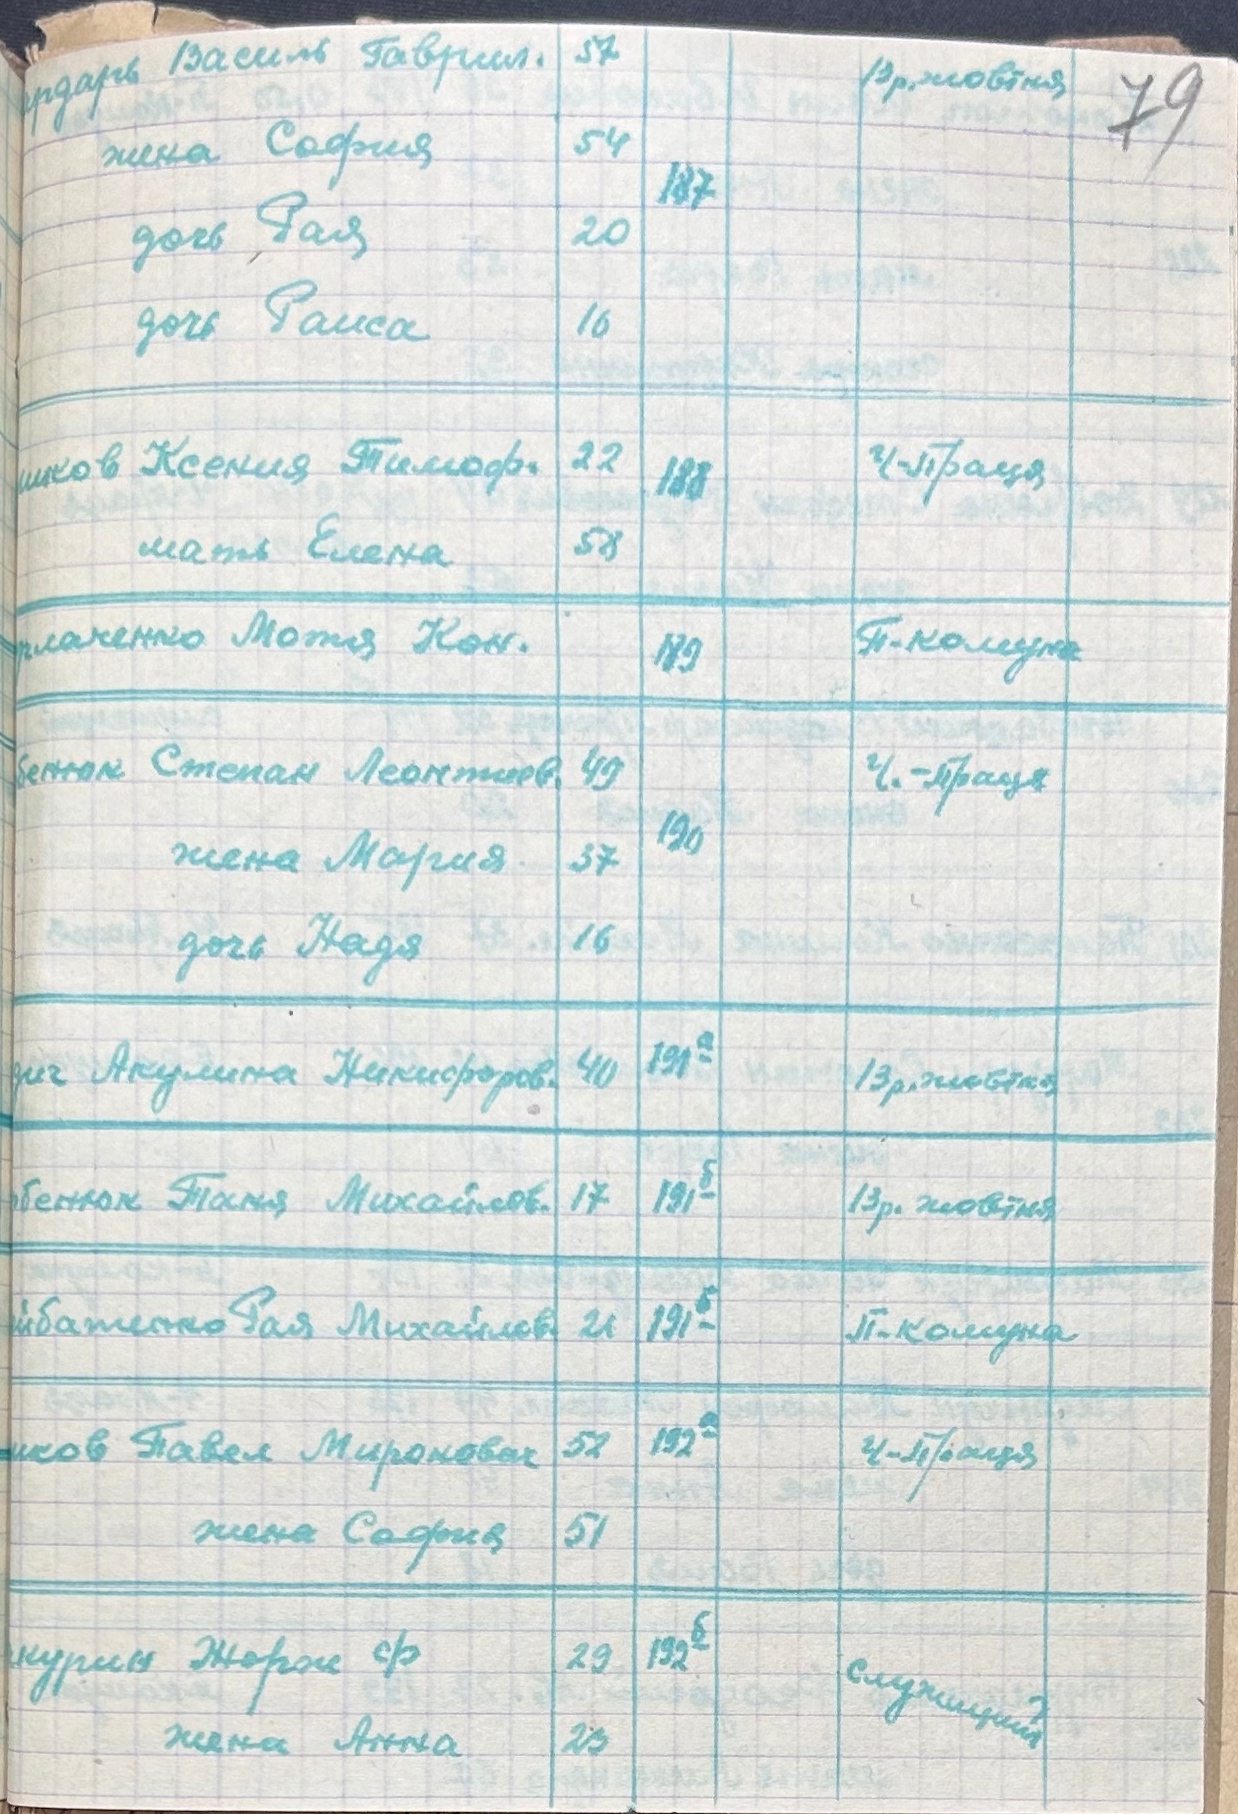 79
рдарь Василь Гаврил. 57 13р.жовтня
жена София 54
187
дочь Рая 20
дочь Раиса 16
иков Ксения Тимоф. 22 188 Ч-Праця
мать Елена 58
рлаченко Мотя Кон. 189 П-комуна
бенюк Степан Леонтиев. 49 Ч.-Праця
190
жена Мария 37
дочь Надя 16
дич Акулина Никифоров. 40 191а 13р.жовтня
рбенюк Таня Михайлов. 17 191б 13р. жовтня
йбатенко Рая Михайлов. 21 191б П-комуна
иков Павел Миронович 52 192а Ч-Праця
жена София 51
курин Жорж Ф 29 192б служищий
жена Анна 23